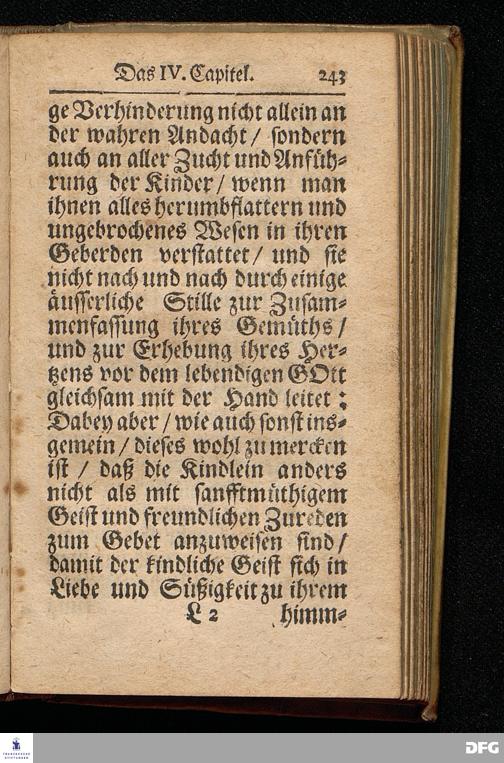 Das IV. Capitel. 243
ge Verhinderung nicht allein an
der wahren Andacht / sondern
auch an aller Zucht und Anfüh-
rung der Kinder / wenn man
ihnen alles herumbflattern und
ungebrochenes Wesen in ihren
Geberden verstattet / und sie
nicht nach und nach durch einige
äusserliche Stille zur Zusam-
menfassung ihres Gemüths /
und zur Erhebung ihres Her-
tzens vor dem lebendigen GOtt
gleichsam mit der Hand leitet :
Dabey aber / wie auch sonst ins-
gemein / dieses wohl zu mercken
ist / daß die Kindlein anders
nicht als mit sanfftmüthigem
Geist und freundlichen Zureden
zum Gebet anzuweisen sind /
damit der kindliche Geist sich in
Liebe und Süßigkeit zu ihrem
L 2 himm-
FRANCKESCHE
STIFTUNGEN
DFG